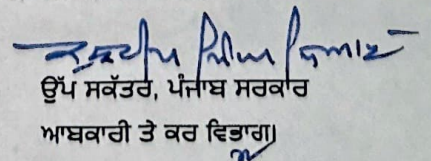 ਉੱਪ ਸਕੱਤਰ, ਪੰਜਾਬ ਸਰਕਾਰ
ਆਬਕਾਰੀ ਤੇ ਕਰ ਵਿਭਾਗ।